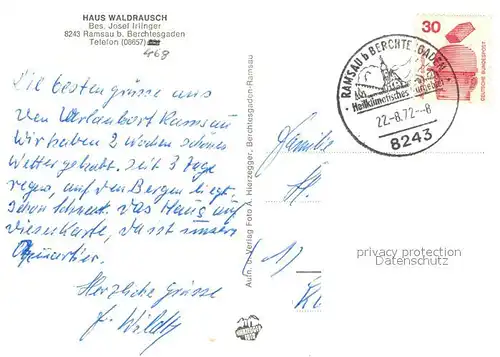 HAUS WALDRAUSCH
Bes. Josef Irlinger
8243 Ramsau b. Berchtesgaden
Telefon (08657)
468
Die besten grüsse aus
den Urlaubort Ramsau
Wir haben 2 Wochen schönes
Wetter gehabt. seit 3 Tage
regen, auf den Bergen liegt
schon Schnee. Das Haus auf
dieser Karte, da ist unsere
Quartier.
Herzliche Grüsse
Aufn. u. Verlag Foto A. Hierzegger, Berchtesgaden-Ramsau
RAMSAU b BERCHTESGADEN
Heilklimatisches
22.-8.72.--8
8243
30
DEUTSCHE BUNDESPOST
Familie
privacy protection
Datenschutz